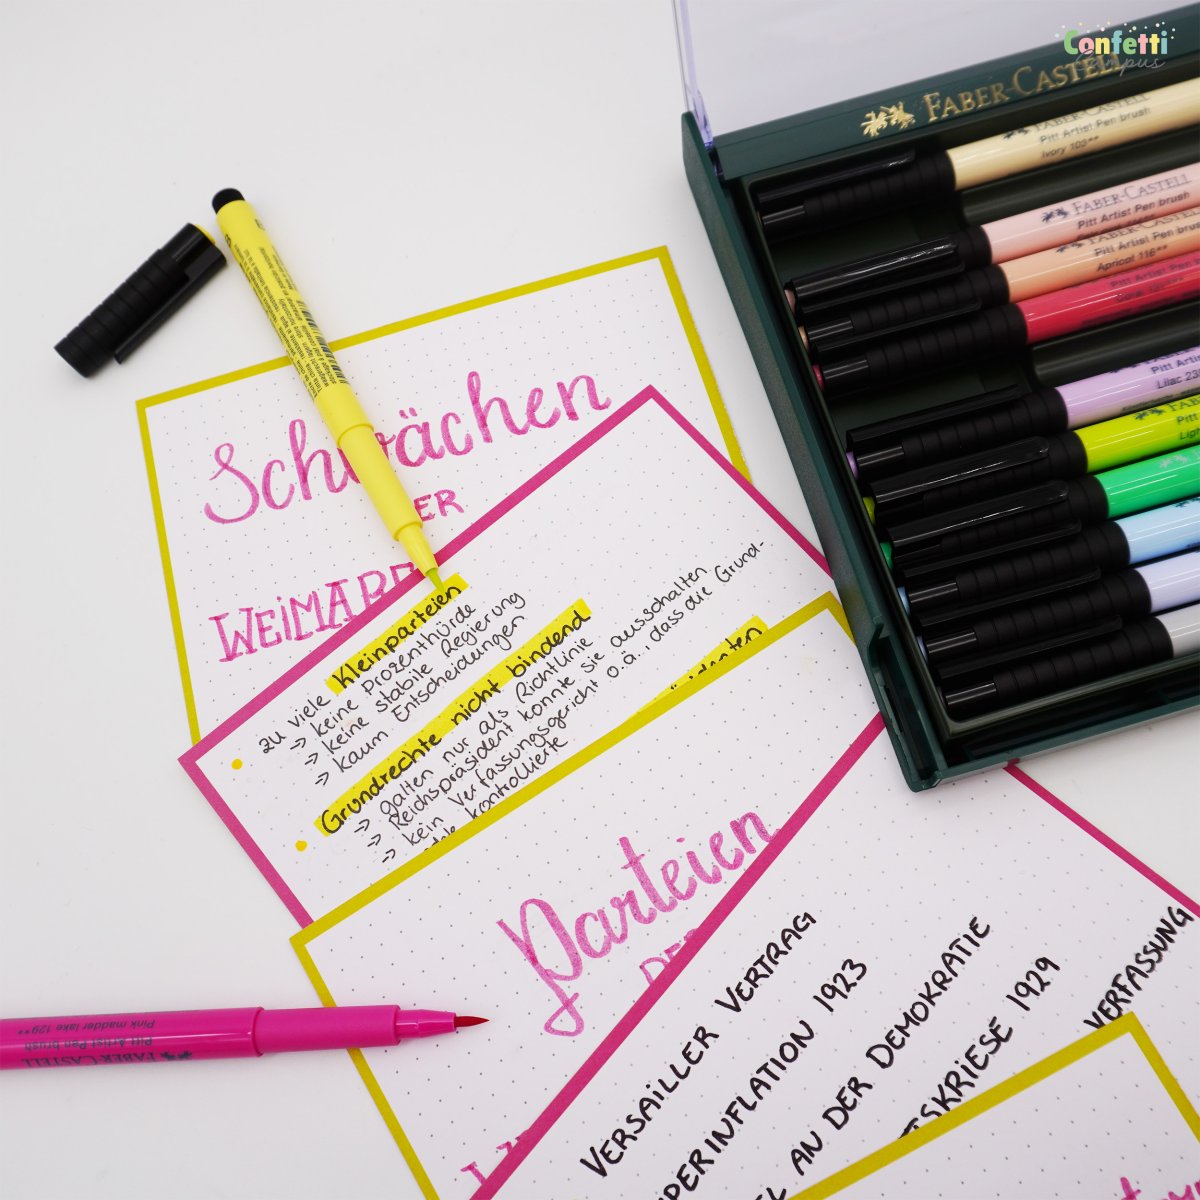 Confetti
Campus
FABER-CASTELL
FABER-CASTELL
Pitt Artist Pen brush
Ivory 103**
FABER-CASTELL
Pitt Artist Pen brush
FABER-CASTELL
Pitt Artist Pen brush
Apricot 116**
Pitt Artist Pen
Pitt Artist
Lilac 23
Pitt
Schwächen
ER
WEIMARE
zu viele Kleinparteien
-> keine Prozenthürde
-> keine stabile Regierung
-> kaum Entscheidungen
Grundrechte nicht bindend
-> galten nur als Richtlinie
-> Reichspräsident konnte sie ausschalten
-> kein Verfassungsgericht o.ä., dass die Grund-
kontrollierte
Parteien
DER
VERSAILLER VERTRAG
PERINFLATION 1923
L AN DER DEMOKRATIE
TSKRIESE 1929
VERFASSUNG
FABER-CASTELL
Pitt Artist Pen brush
Pink madder lake 129**